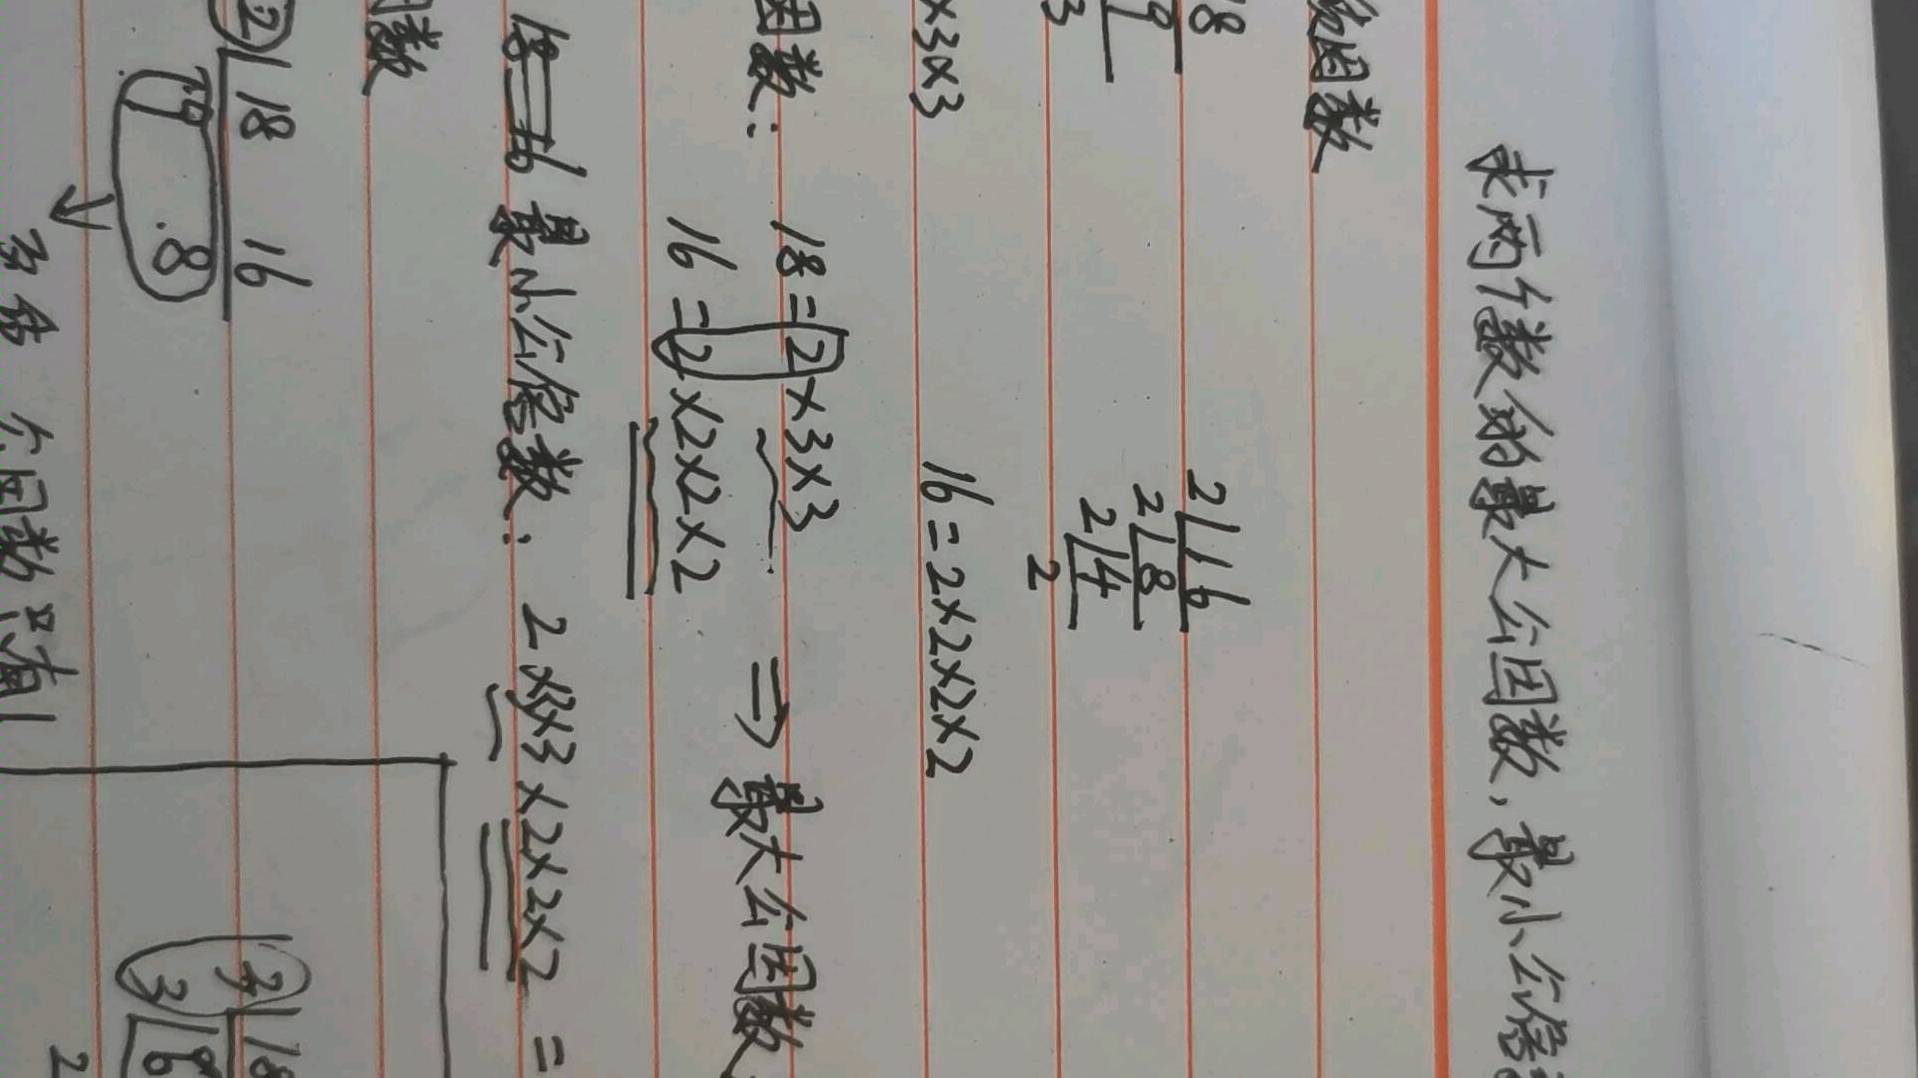 求两个数的最大公因数,最小公倍
因数
18 2|16
9 2|8
3 2|4
2
×3×3 16=2×2×2×2
因数: 18=2×3×3
16=2×2×2×2 ⇒ 最大公因数
18 16 最小公倍数: 2×3×3×2×2×2=
数
2|18 16
9 8
↓
公因数只有1
3|18
3|6
2